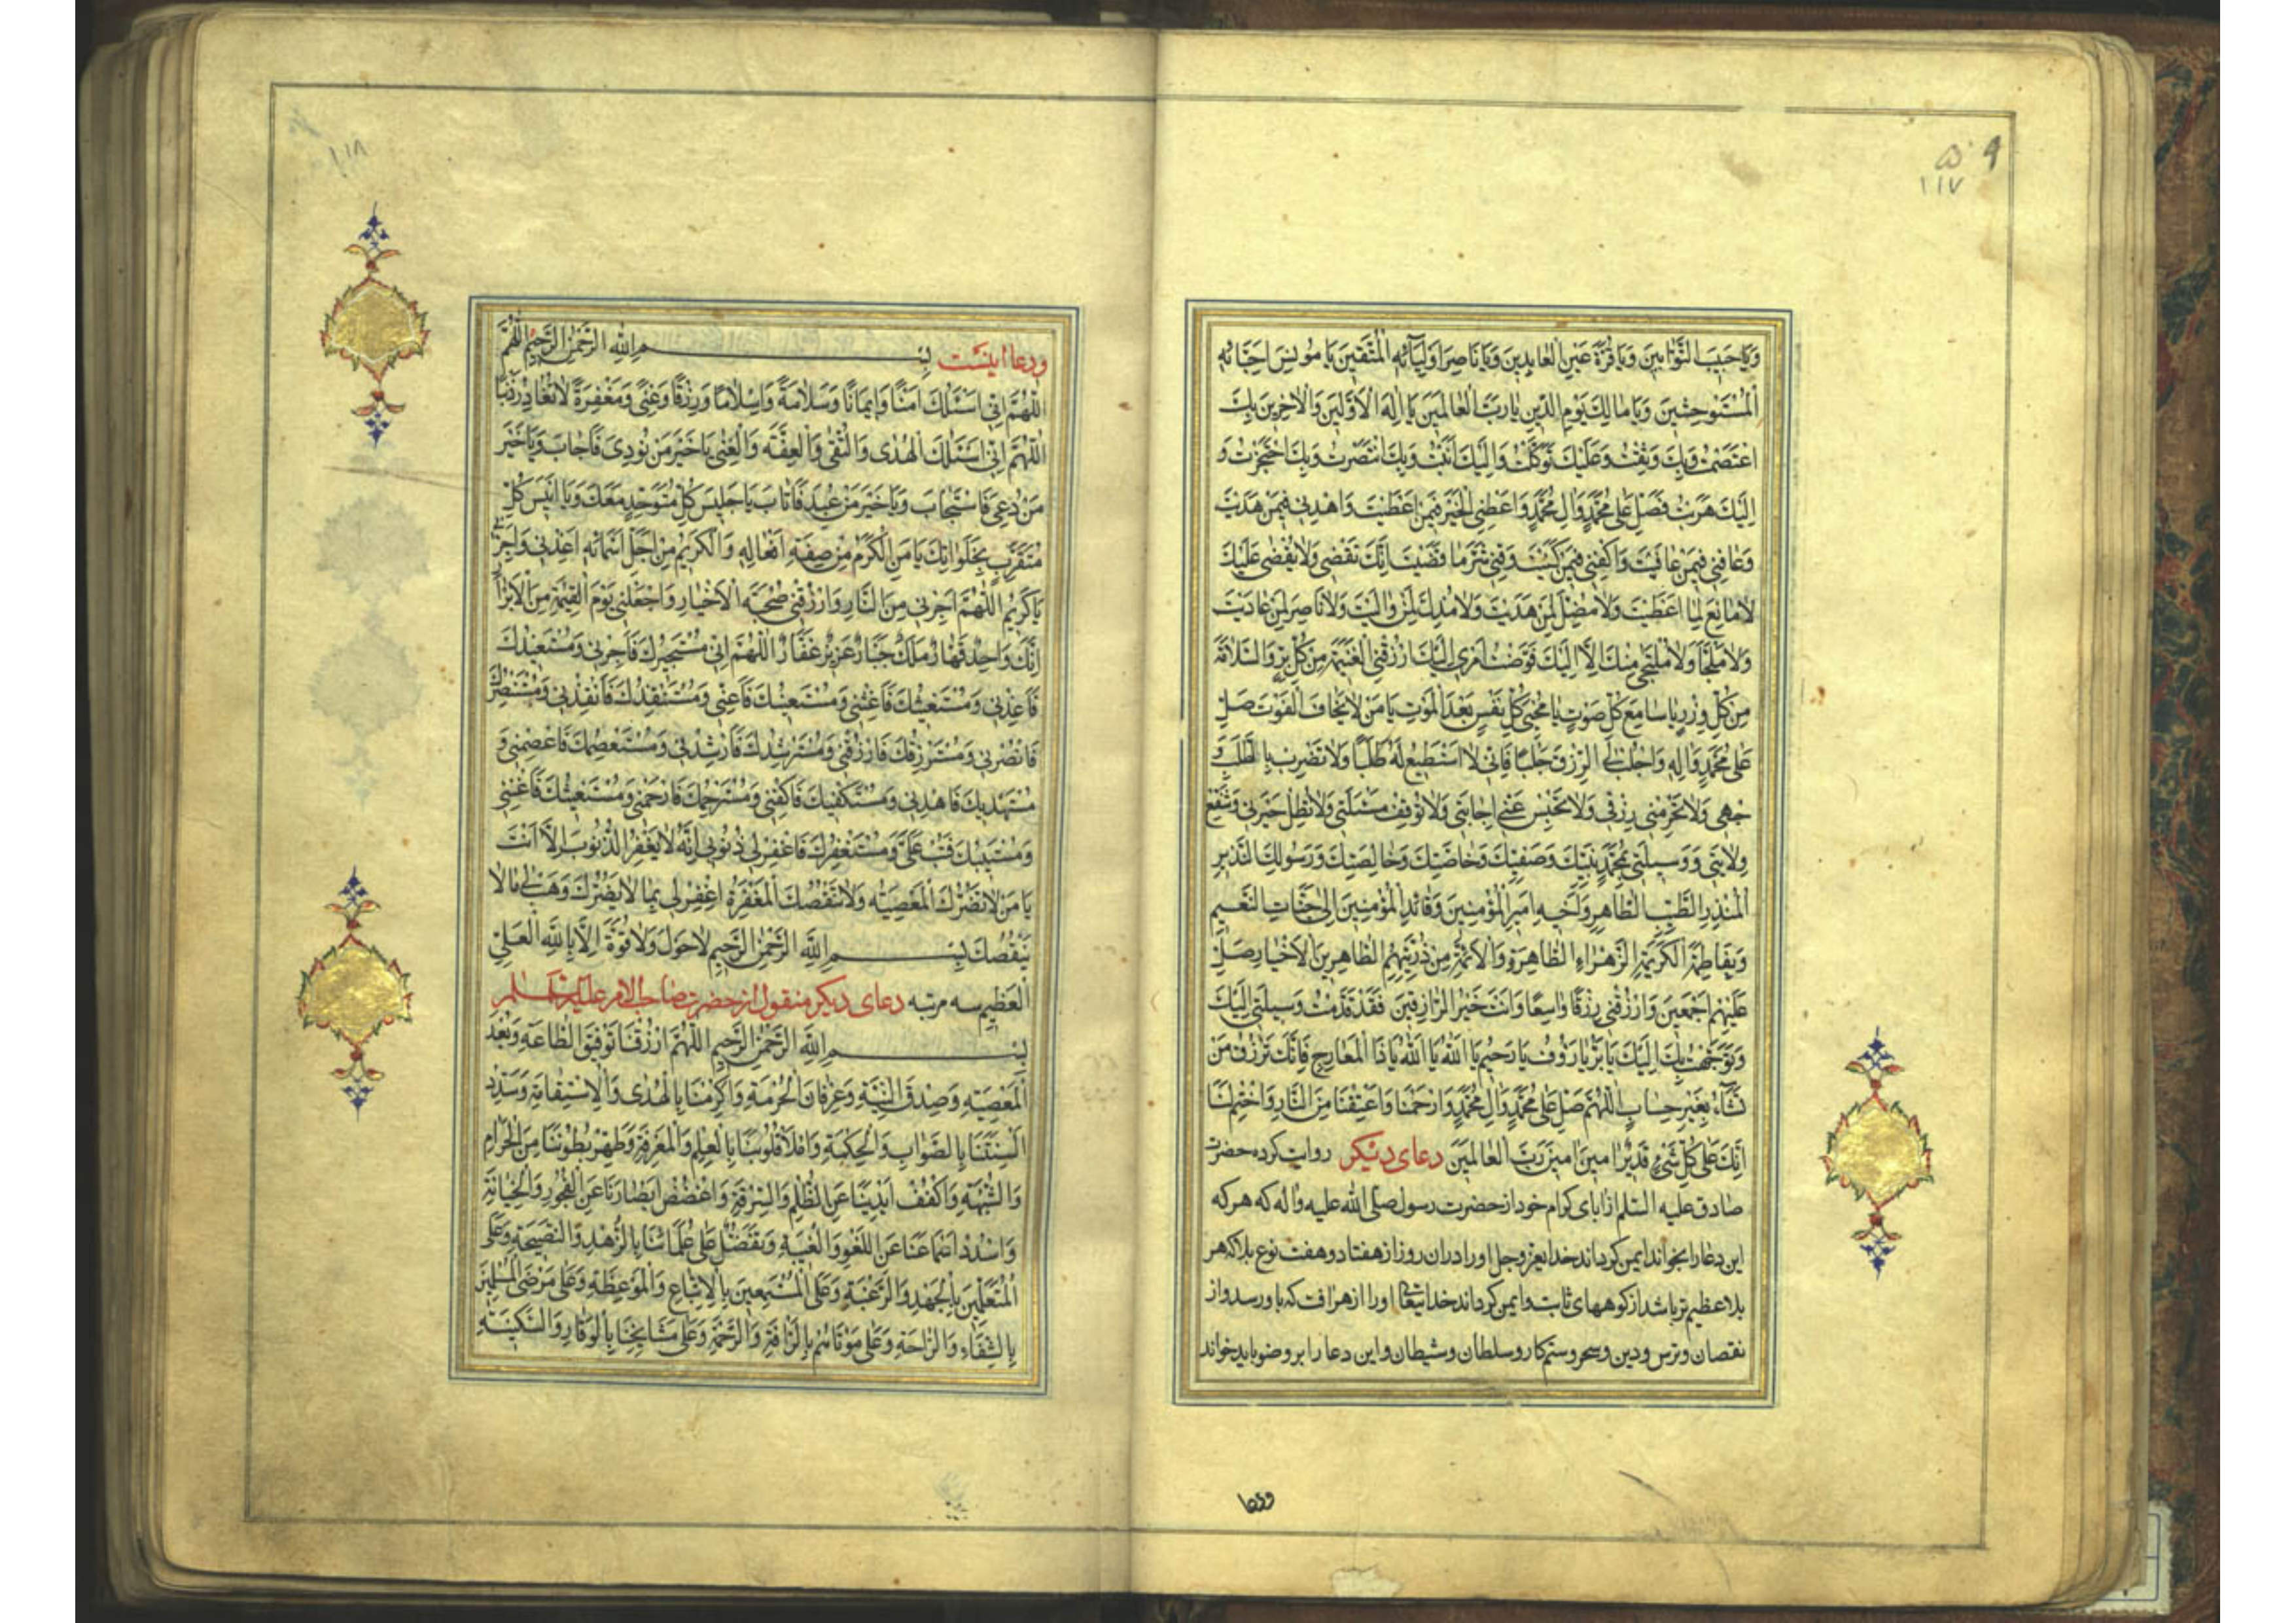 ۱۱۷
وَيَا حَبِيبَ التَّوَّابِينَ وَيَا قُرَّةَ عَيْنِ الْعَابِدِينَ وَيَا نَاصِرَ اَوْلِيَآئِهِ الْمُتَّقِينَ يَا مُونِسَ اَحِبَّائِهِ
الْمُسْتَوْحِشِينَ وَيَا مَالِكَ يَوْمِ الدِّينِ يَا رَبَّ الْعَالَمِينَ يَا اِلٰهَ الْاَوَّلِينَ وَالْاٰخِرِينَ بِكَ
اعْتَصَمْتُ وَبِكَ وَثِقْتُ وَعَلَيْكَ تَوَكَّلْتُ وَاِلَيْكَ اَنَبْتُ وَبِكَ انْتَصَرْتُ وَبِكَ احْتَجَزْتُ وَ
اِلَيْكَ هَرَبْتُ فَصَلِّ عَلٰى مُحَمَّدٍ وَاٰلِ مُحَمَّدٍ وَاَعْطِنِي الْخَيْرَ فِيمَنْ اَعْطَيْتَ وَاهْدِنِي فِيمَنْ هَدَيْتَ
وَعَافِنِي فِيمَنْ عَافَيْتَ وَاكْفِنِي فِيمَنْ كَفَيْتَ وَقِنِي شَرَّ مَا قَضَيْتَ اِنَّكَ تَقْضِي وَلَا يُقْضٰى عَلَيْكَ
لَا مَانِعَ لِمَا اَعْطَيْتَ وَلَا مُضِلَّ لِمَنْ هَدَيْتَ وَلَا مُذِلَّ لِمَنْ وَالَيْتَ وَلَا نَاصِرَ لِمَنْ عَادَيْتَ
وَلَا مَلْجَأَ وَلَا مُلْتَجٰى مِنْكَ اِلَّا اِلَيْكَ فَوَّضْتُ اَمْرِي اِلَيْكَ ارْزُقْنِي الْغَنِيمَةَ مِنْ كُلِّ بِرٍّ وَالسَّلَامَةَ
مِنْ كُلِّ وِزْرٍ يَا سَامِعَ كُلِّ صَوْتٍ يَا مُحْيِيَ كُلِّ نَفْسٍ بَعْدَ الْمَوْتِ يَا مَنْ لَا يَخَافُ الْفَوْتَ صَلِّ
عَلٰى مُحَمَّدٍ وَاٰلِهِ وَاجْلُبْ لِيَ الرِّزْقَ جَلْبًا فَاِنِّي لَا اَسْتَطِيعُ لَهُ طَلَبًا وَلَا تَضْرِبْ بِالطَّلَبِ وَ
جْهِي وَلَا تَحْرِمْنِي رِزْقِي وَلَا تَحْبِسْ عَنِّي اِجَابَتِي وَلَا تُوقِفْ مَسْئَلَتِي وَلَا تُطِلْ حَيْرَتِي وَشَفِّعْ
وِلَايَتِي وَوَسِيلَتِي بِمُحَمَّدٍ نَبِيِّكَ وَصَفِيِّكَ وَخَاصَّتِكَ وَخَالِصَتِكَ وَرَسُولِكَ النَّذِيرِ
الْمُنْذِرِ الطَّيِّبِ الطَّاهِرِ وَاَخِيهِ اَمِيرِ الْمُؤْمِنِينَ وَقَائِدِ الْمُؤْمِنِينَ اِلٰى جَنَّاتِ النَّعِيمِ
وَبِفَاطِمَةَ الْكَرِيمَةِ الزَّهْرَاءِ الطَّاهِرَةِ وَالْاَئِمَّةِ مِنْ ذُرِّيَّتِهِمُ الطَّاهِرِينَ الْاَخْيَارِ صَلِّ
عَلَيْهِمْ اَجْمَعِينَ وَارْزُقْنِي رِزْقًا وَاسِعًا وَاَنْتَ خَيْرُ الرَّازِقِينَ فَقَدْ قَدَّمْتُ وَسِيلَتِي اِلَيْكَ
وَتَوَجَّهْتُ بِكَ اِلَيْكَ يَا بَرُّ يَا رَؤُوفُ يَا رَحِيمُ يَا اَللهُ يَا اَللهُ يَا ذَا الْمَعَارِجِ فَاِنَّكَ تَرْزُقُ مَنْ
تَشَاءُ بِغَيْرِ حِسَابٍ اللّٰهُمَّ صَلِّ عَلٰى مُحَمَّدٍ وَاٰلِ مُحَمَّدٍ وَارْحَمْنَا وَاَعْتِقْنَا مِنَ النَّارِ وَاخْتِمْ لَنَا
اِنَّكَ عَلٰى كُلِّ شَيْءٍ قَدِيرٌ اٰمِينَ اٰمِينَ رَبَّ الْعَالَمِينَ دعای دیگر روایت کرده حضرت
صادق علیه السلم از ابای کرام خود از حضرت رسول صلی الله علیه واله که هر که
این دعا را بخواند ایمن کرداند خدایعز وجل او را دران روز از هفتاد و هفت نوع بلا که هر
بلا عظیم تر باشد از کوههای ثابت و ایمن کرداند خدایتعالی او را از هر افت که باو رسد و از
نقصان و ترس و دین و سحر و ستمکار و سلطان و شیطان و این دعا را بر وضو باید خواند
ودعا
۱۱۸
ودعا اینست بِسْمِ اللهِ الرَّحْمٰنِ الرَّحِيمِ اللّٰهُمَّ
اللّٰهُمَّ اِنِّي اَسْئَلُكَ اَمْنًا وَاِيمَانًا وَسَلَامَةً وَاِسْلَامًا وَرِزْقًا وَغِنًى وَمَغْفِرَةً لَا تُغَادِرُ ذَنْبًا
اللّٰهُمَّ اِنِّي اَسْئَلُكَ الْهُدٰى وَالتُّقٰى وَالْعِفَّةَ وَالْغِنٰى يَا خَيْرَ مَنْ نُودِيَ فَاَجَابَ وَيَا خَيْرَ
مَنْ دُعِيَ فَاسْتَجَابَ وَيَا خَيْرَ مَنْ عُبِدَ فَاَثَابَ يَا جَلِيسَ كُلِّ مُتَوَحِّدٍ مَعَكَ وَيَا اَنِيسَ كُلِّ
مُتَقَرِّبٍ بِخَلَوَاتِكَ يَا مَنِ الْكَرَمُ مِنْ صِفَةِ اَفْعَالِهِ وَالْكَرِيمُ مِنْ اَجَلِّ اَسْمَائِهِ اَعِذْنِي وَاَجِرْنِي
يَا كَرِيمُ اللّٰهُمَّ اَجِرْنِي مِنَ النَّارِ وَارْزُقْنِي صُحْبَةَ الْاَخْيَارِ وَاجْعَلْنِي يَوْمَ الْقِيٰمَةِ مِنَ الْاَبْرَارِ
اِنَّكَ وَاحِدٌ قَهَّارٌ مَلِكٌ جَبَّارٌ عَزِيزٌ غَفَّارٌ اللّٰهُمَّ اِنِّي مُسْتَجِيرُكَ فَاَجِرْنِي وَمُسْتَعِيذُكَ
فَاَعِذْنِي وَمُسْتَغِيثُكَ فَاَغِثْنِي وَمُسْتَعِينُكَ فَاَعِنِّي وَمُسْتَنْقِذُكَ فَاَنْقِذْنِي وَمُسْتَنْصِرُكَ
فَانْصُرْنِي وَمُسْتَرْزِقُكَ فَارْزُقْنِي وَمُسْتَرْشِدُكَ فَاَرْشِدْنِي وَمُسْتَعْصِمُكَ فَاعْصِمْنِي وَ
مُسْتَهْدِيكَ فَاهْدِنِي وَمُسْتَكْفِيكَ فَاكْفِنِي وَمُسْتَرْحِمُكَ فَارْحَمْنِي وَمُسْتَغِيثُكَ فَاَغِثْنِي
وَمُسْتَتِيبُكَ فَتُبْ عَلَيَّ وَمُسْتَغْفِرُكَ فَاغْفِرْ لِي ذُنُوبِي اِنَّهُ لَا يَغْفِرُ الذُّنُوبَ اِلَّا اَنْتَ
يَا مَنْ لَا تَضُرُّكَ الْمَعْصِيَةُ وَلَا تَنْقُصُكَ الْمَغْفِرَةُ اغْفِرْ لِي مَا لَا يَضُرُّكَ وَهَبْ لِي مَا لَا
يَنْقُصُكَ بِسْمِ اللهِ الرَّحْمٰنِ الرَّحِيمِ لَا حَوْلَ وَلَا قُوَّةَ اِلَّا بِاللهِ الْعَلِيِّ
الْعَظِيمِ سه مرتبه دعای دیکر منقول از حضرت صاحب الامر علیه السلم
بِسْمِ اللهِ الرَّحْمٰنِ الرَّحِيمِ اللّٰهُمَّ ارْزُقْنَا تَوْفِيقَ الطَّاعَةِ وَبُعْدَ
الْمَعْصِيَةِ وَصِدْقَ النِّيَّةِ وَعِرْفَانَ الْحُرْمَةِ وَاَكْرِمْنَا بِالْهُدٰى وَالْاِسْتِقَامَةِ وَسَدِّدْ
اَلْسِنَتَنَا بِالصَّوَابِ وَالْحِكْمَةِ وَامْلَأْ قُلُوبَنَا بِالْعِلْمِ وَالْمَعْرِفَةِ وَطَهِّرْ بُطُونَنَا مِنَ الْحَرَامِ
وَالشُّبْهَةِ وَاكْفُفْ اَيْدِيَنَا عَنِ الظُّلْمِ وَالسِّرْقَةِ وَاغْضُضْ اَبْصَارَنَا عَنِ الْفُجُورِ وَالْخِيَانَةِ
وَاسْدُدْ اَسْمَاعَنَا عَنِ اللَّغْوِ وَالْغِيبَةِ وَتَفَضَّلْ عَلٰى عُلَمَائِنَا بِالزُّهْدِ وَالنَّصِيحَةِ وَعَلَى
الْمُتَعَلِّمِينَ بِالْجُهْدِ وَالرَّغْبَةِ وَعَلَى الْمُسْتَمِعِينَ بِالْاِتِّبَاعِ وَالْمَوْعِظَةِ وَعَلٰى مَرْضَى الْمُسْلِمِينَ
بِالشِّفَاءِ وَالرَّاحَةِ وَعَلٰى مَوْتَاهُمْ بِالرَّأْفَةِ وَالرَّحْمَةِ وَعَلٰى مَشَايِخِنَا بِالْوَقَارِ وَالسَّكِينَةِ